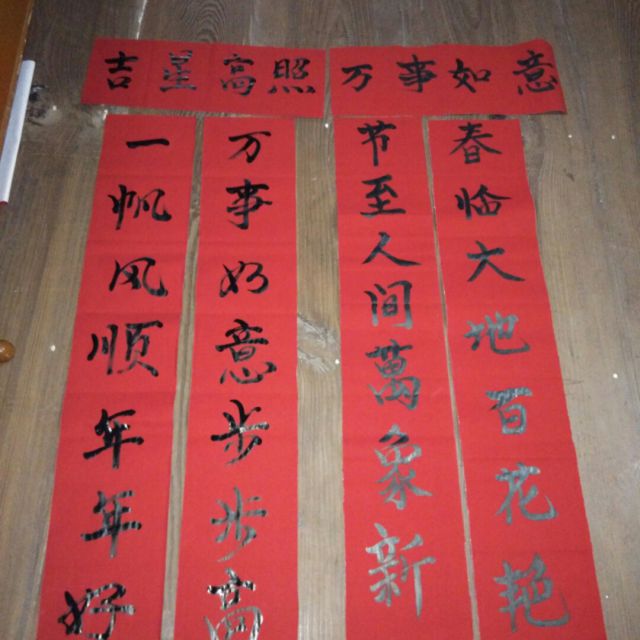 吉星高照
万事如意
一帆风顺年年好
万事如意步步高
节至人间萬象新
春临大地百花艳